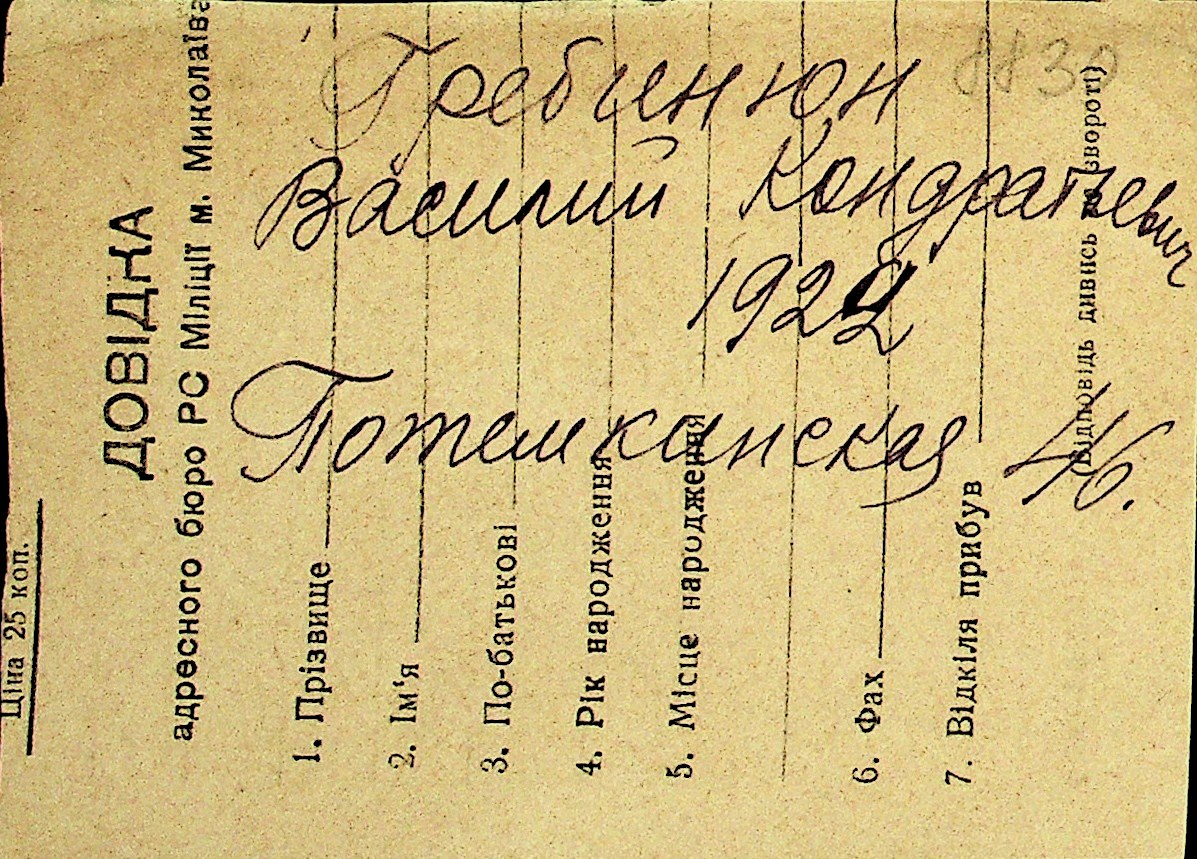 Ціна 25 коп.
ДОВІДКА
адресного бюро РС Міліції м. Миколаїва
1. Прізвище
2. Ім'я
3. По-батькові
4. Рік народження
5. Місце народження
6. Фах
7. Відкіля прибув
(Відповідь дивись на звороті)
Гребченюк
Василий Кондратьевич
1922
Потемкинская 46.